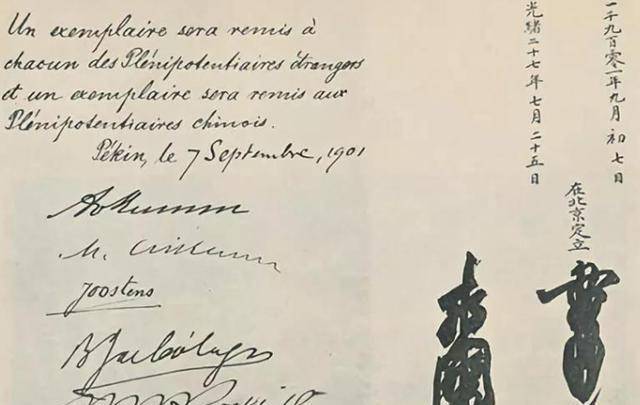 Un exemplaire sera remis à
chacun des Plénipotentiaires étrangers
et un exemplaire sera remis aux
Plénipotentiaires chinois.
Pékin, le 7 Septembre, 1901
Joostens
一千九百零一年九月初七日
在北京定立
光緒二十七年七月二十五日